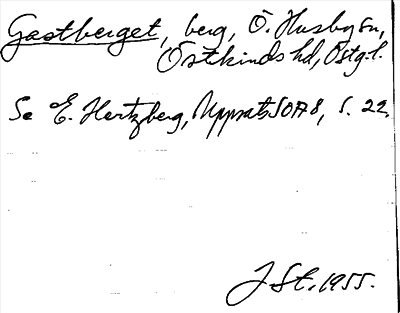 Gastberget, berg, Ö. Husby sn,
Östkinds hd, Östg.l.
Se E. Hertzberg, Uppsats SOA8, s. 22.
J St. 1955.